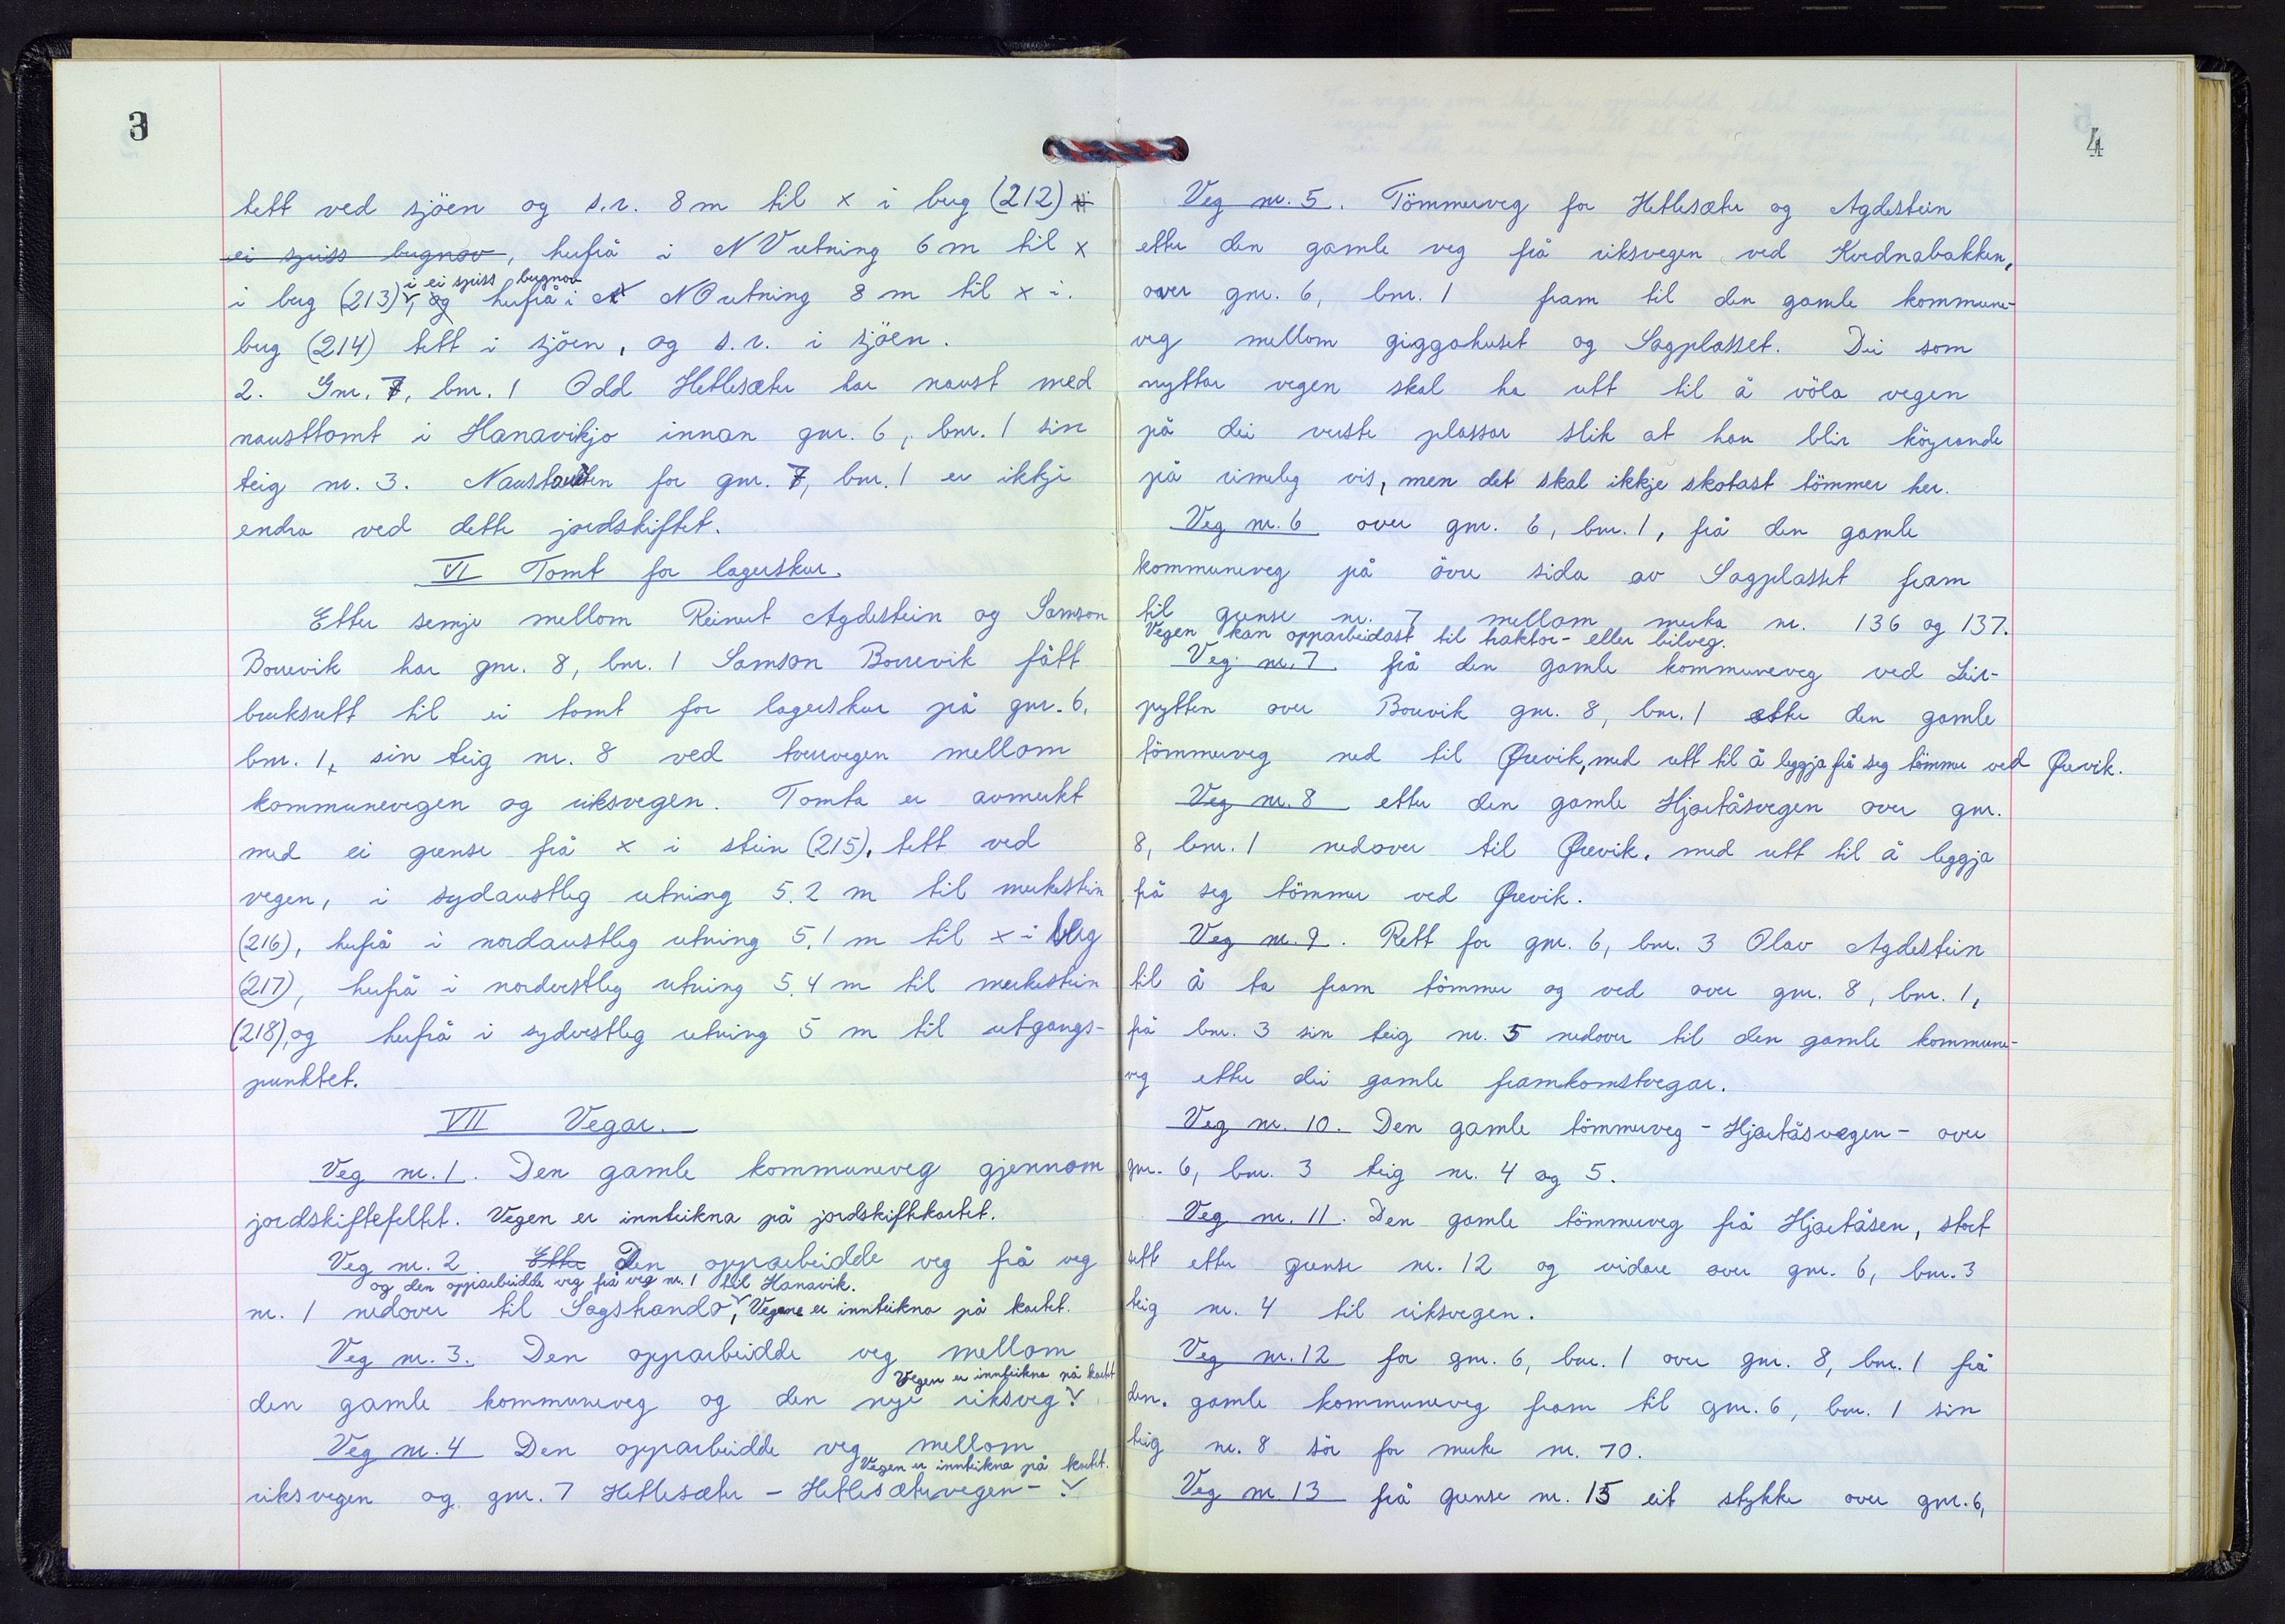 3
tett ved sjöen og s.r. 8 m til x i berg (212) i
ei spiss bergnov, herfrå i NV retning 6 m til x
i ei spiss bergnov
i berg (213), og herfrå i NO retning 8 m til x i
berg (214) tett i sjöen, og s.r. i sjöen.
2. Gnr. 7, bnr. 1 Odd Hetlesæter har naust med
nausttomt i Hanavikjo innan gnr. 6, bnr. 1 sin
teig nr. 3. Naustretten for gnr. 7, bnr. 1 er ikkje
endra ved dette jordskiftet.
VI Tomt for lagerskur.
Etter semje mellom Reinert Agdestein og Samson
Borrevik har gnr. 8, bnr. 1 Samson Borrevik fått
bruksrett til ei tomt for lagerskur på gnr. 6,
bnr. 1, sin teig nr. 8 ved tverrvegen mellom
kommunevegen og riksvegen. Tomta er avmerkt
med ei grense frå x i stein (215), tett ved
vegen, i sydaustleg retning 5.2 m til merkestein
(216), herfrå i nordaustleg retning 5,1 m til x i berg
(217), herfrå i nordvestleg retning 5.4 m til merkestein
(218), og herfrå i sydvestleg retning 5 m til utgangs-
punktet.
VII Vegar.
Veg nr. 1. Den gamle kommuneveg gjennom
jordskiftefeltet. Vegen er innteikna på jordskiftekartet.
Veg nr. 2. Etter Den opparbeidde veg frå veg
og den opparbeidde veg frå veg nr. 1 til Hanavik.
nr. 1 nedover til Sagshando, Vegane er innteikna på kartet.
Veg nr. 3. Den opparbeidde veg mellom
Vegen er innteikna på kartet
den gamle kommuneveg og den nye riksveg.
Veg nr. 4 Den opparbeidde veg mellom
Vegen er innteikna på kartet.
riksvegen og gnr. 7 Hetlesæter - Hetlesætervegen -.
4
Veg nr. 5. Tömmerveg for Hetlesæter og Agdestein
etter den gamle veg frå riksvegen ved Kvednabakken,
over gnr. 6, bnr. 1 fram til den gamle kommune-
veg mellom giggahuset og Sagplasset. Dei som
nyttar vegen skal ha rett til å völa vegen
på dei verste plassar slik at han blir köyrande
på rimeleg vis, men det skal ikkje skotast tömmer her.
Veg nr. 6 over gnr. 6, bnr. 1, frå den gamle
kommuneveg på övre sida av Sagplasset fram
til grense nr. 7 mellom merka nr. 136 og 137.
Vegen kan opparbeidast til traktor- eller bilveg.
Veg nr. 7 frå den gamle kommuneveg ved Leir-
pytten over Borrvik gnr. 8, bnr. 1 etter den gamle
tömmerveg ned til Ørevik, med rett til å leggja frå seg tömmer ved Ørevik.
Veg nr. 8 etter den gamle Hjartåsvegen over gnr.
8, bnr. 1 nedover til Ørevik, med rett til å leggja
frå seg tömmer ved Ørevik.
Veg nr. 9. Rett for gnr. 6, bnr. 3 Olav Agdestein
til å ta fram tömmer og ved over gnr. 8, bnr. 1,
frå bnr. 3 sin teig nr. 5 nedover til den gamle kommune-
veg etter dei gamle framkomstvegar.
Veg nr. 10. Den gamle tömmerveg - Hjartåsvegen - over
gnr. 6, bnr. 3 teig nr. 4 og 5.
Veg nr. 11. Den gamle tömmerveg frå Hjartåsen, stort
sett etter grense nr. 12 og vidare over gnr. 6, bnr. 3
teig nr. 4 til riksvegen.
Veg nr. 12 for gnr. 6, bnr. 1 over gnr. 8, bnr. 1 frå
den gamle kommuneveg fram til gnr. 6, bnr. 1 sin
teig nr. 8 sör for merke nr. 70.
Veg nr. 13 frå grense nr. 15 eit stykke over gnr. 6,